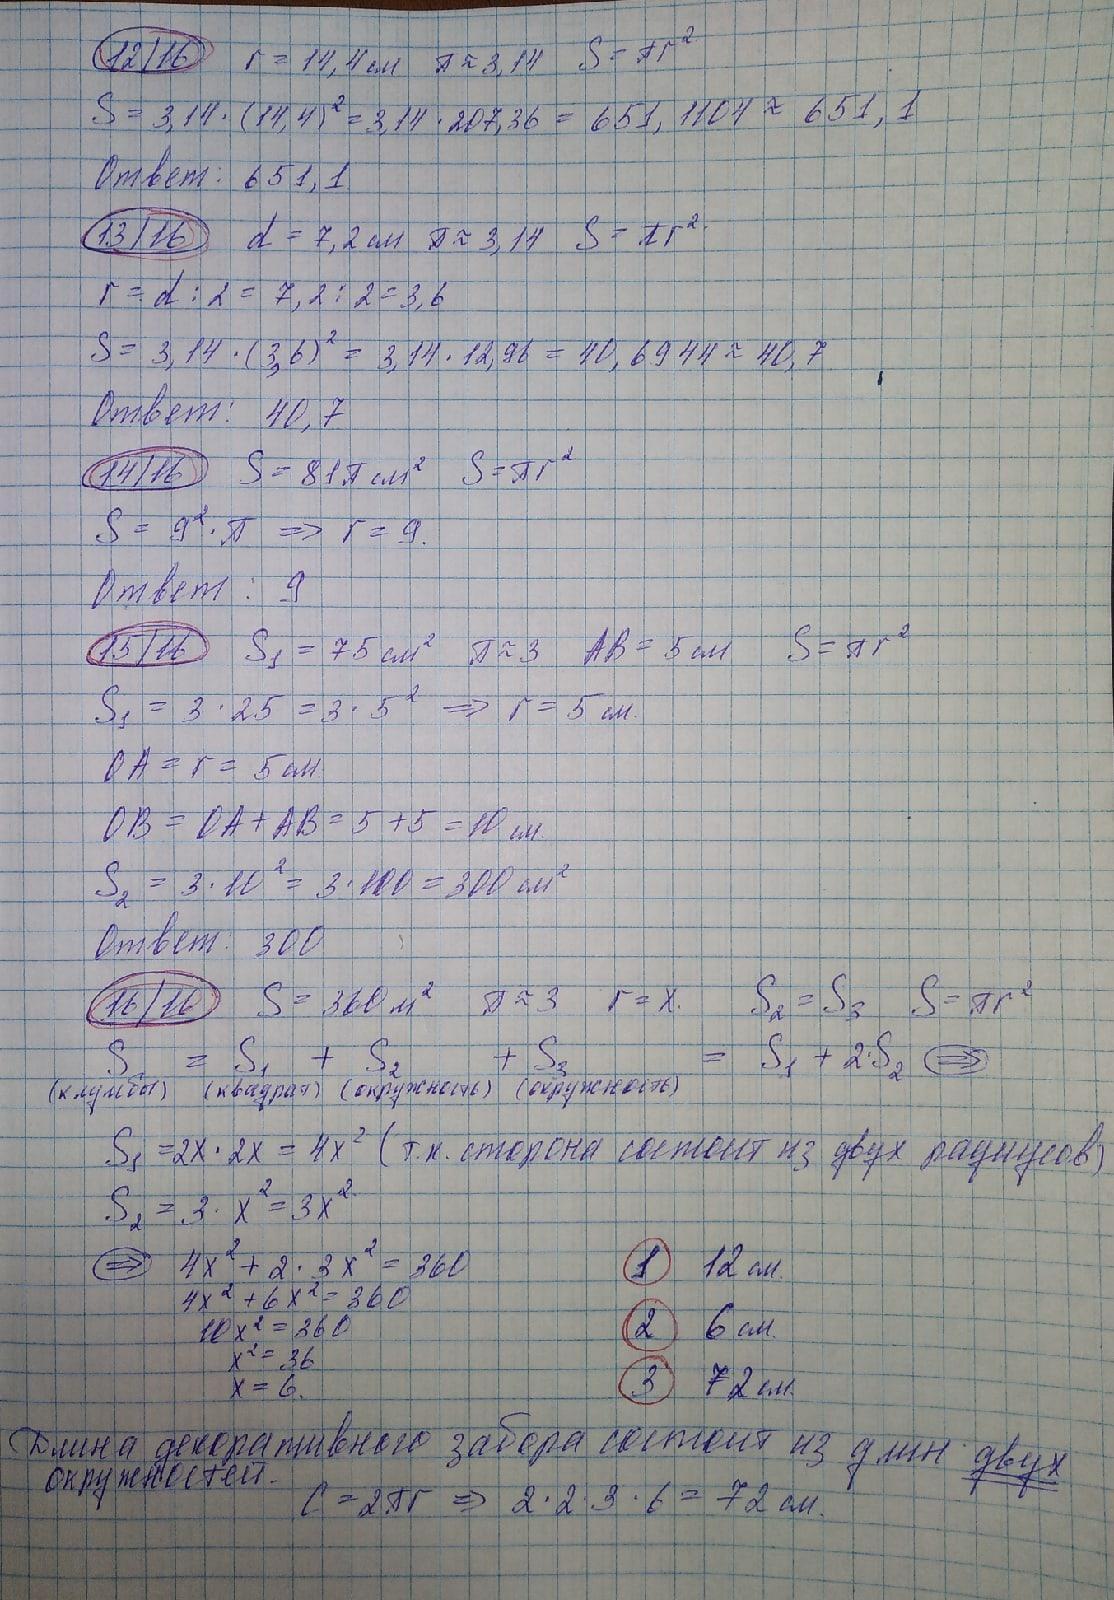 12/16 r = 14,4 см π ≈ 3,14 S = πr²
S = 3,14 · (14,4)² = 3,14 · 207,36 = 651,1104 ≈ 651,1
Ответ: 651,1
13/16 d = 7,2 см π ≈ 3,14 S = πr²
r = d : 2 = 7,2 : 2 = 3,6
S = 3,14 · (3,6)² = 3,14 · 12,96 = 40,6944 ≈ 40,7
Ответ: 40,7
14/16 S = 81π см² S = πr²
S = 9² · π ⇒ r = 9.
Ответ: 9
15/16 S₁ = 75 см² π ≈ 3 AB = 5 см S = πr²
S₁ = 3 · 25 = 3 · 5² ⇒ r = 5 см.
OA = r = 5 см
OB = OA + AB = 5 + 5 = 10 см.
S₂ = 3 · 10² = 3 · 100 = 300 см²
Ответ: 300
16/16 S = 360 м² π ≈ 3 r = x. S₂ = S₃ S = πr²
S = S₁ + S₂ + S₃ = S₁ + 2·S₂ ⇒
(клумбы) (квадрат) (окружность) (окружность)
S₁ = 2x · 2x = 4x² (т.к. сторона состоит из двух радиусов)
S₂ = 3 · x² = 3x²
⇒ 4x² + 2 · 3x² = 360
4x² + 6x² = 360
10x² = 360
x² = 36
x = 6.
1 12 см.
2 6 см.
3 72 см.
Длина декоративного забора состоит из длин двух
окружностей.
C = 2πr ⇒ 2 · 2 · 3 · 6 = 72 см.